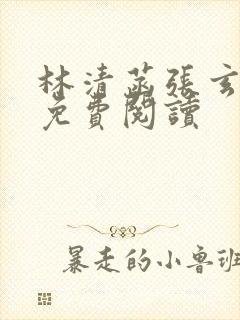 林清菡張玄
免費閱讀
暴走的小魯班